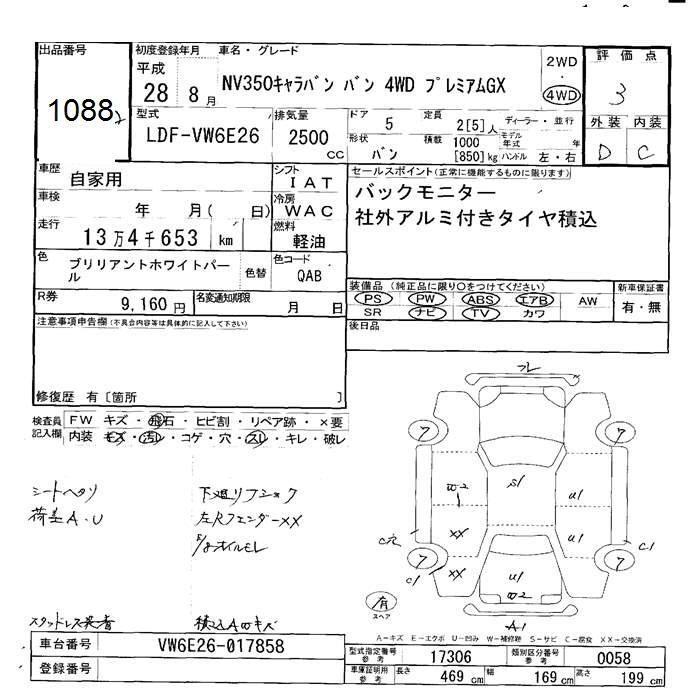 出品番号
1088
初度登録年月 車名・グレード
平成
28 8月
NV350キャラバン バン 4WD プレミアムGX
2WD
・
4WD
評価点
3
型式
LDF-VW6E26
排気量
2500
CC
ドア
5
定員
2[5]人
ディーラー・並行
形状
バン
積載
1000
[850]kg
モデル年式 年
ハンドル 左・右
外装 内装
D C
車歴
自家用
シフト
IAT
車検
年 月( 日)
冷房
WAC
走行
13万4千653 km
燃料
軽油
色
ブリリアントホワイトパール
色替
色コード
QAB
R券
9,160円
名変通知期限
月 日
セールスポイント(正常に機能するものに限ります)
バックモニター
社外アルミ付きタイヤ積込
装備品 (純正品に限り○をつけてください)
PS PW ABS エアB AW
SR ナビ TV カワ
新車保証書
有・無
後日品
注意事項申告欄(不具合内容等は具体的に記入して下さい)
修復歴 有[箇所 ]
検査員記入欄
FW キズ・飛石・ヒビ割・リペア跡・×要
内装 キズ・汚レ・コゲ・穴・スレ・キレ・破レ
シートヘタリ
荷室A・U
左Rフェンダー××
スタッドレス装着
フレ
7
7
7
7
S1
U2
1
U1
U1
XX
XX
C穴
C1
C1
U1
U2
A1
有
スペア
A-キズ E-エクボ U-凹み W-補修跡 S-サビ C-腐食 XX-交換済
車台番号
VW6E26-017858
登録番号
型式指定番号
参考
17306
類別区分番号
参考
0058
車庫証明用
参考
長さ
469 cm
幅
169 cm
高さ
199 cm